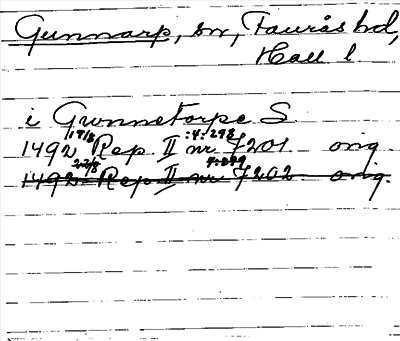 Gunnarp, sn, Faurås hd,
Hall l
i Gwnnetorpe S
17/8 :4:298
1492 Rep II nr 7201 orig
22/8 4:299
1492 Rep II nr 7202 orig.